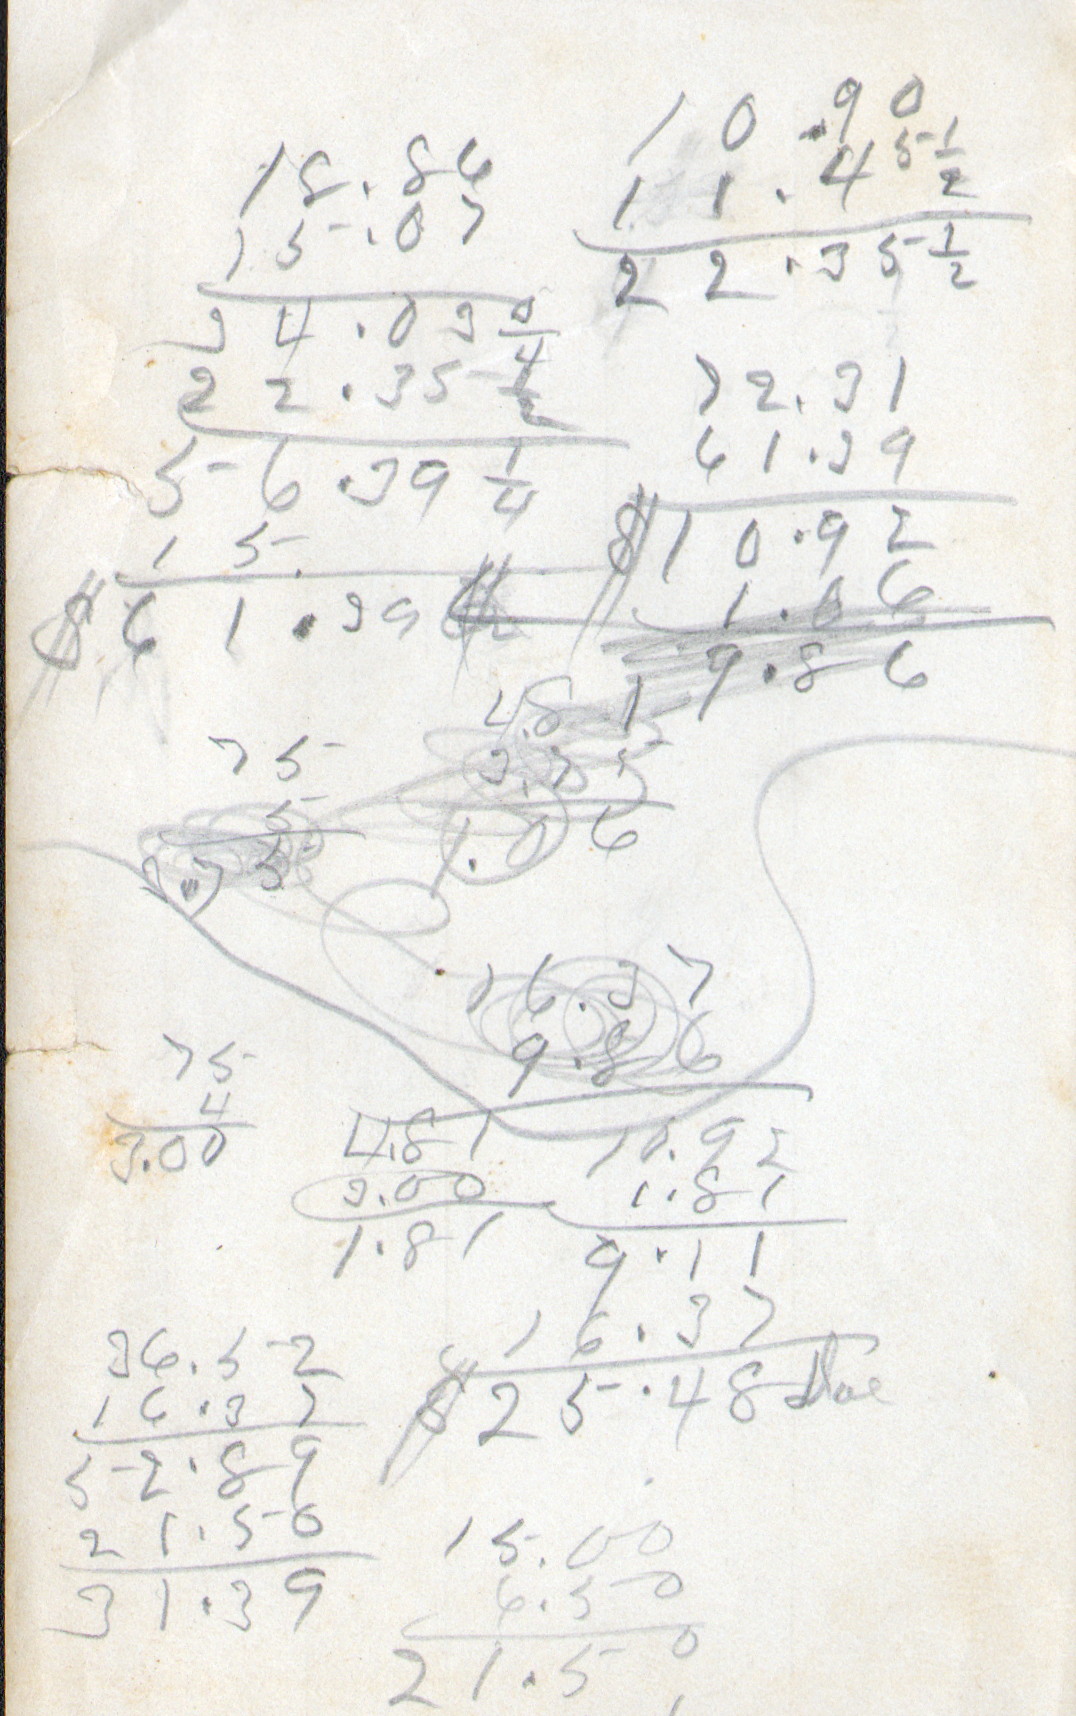 10.90
11.45 1/2
22.35 1/2
18.86
15.07
34.03 0/4
22.35 1/2
56.39 1/4
15.
$61.39
72.31
61.39
$10.92
1.06
9.86
4.81
3.75
1.06
75
5
3.75
16.37
9.86
75
4
3.00
4.81
3.00
1.81
10.92
1.81
9.11
16.37
$25.48 Due
36.52
16.37
52.89
21.50
31.39
15.00
6.50
21.50